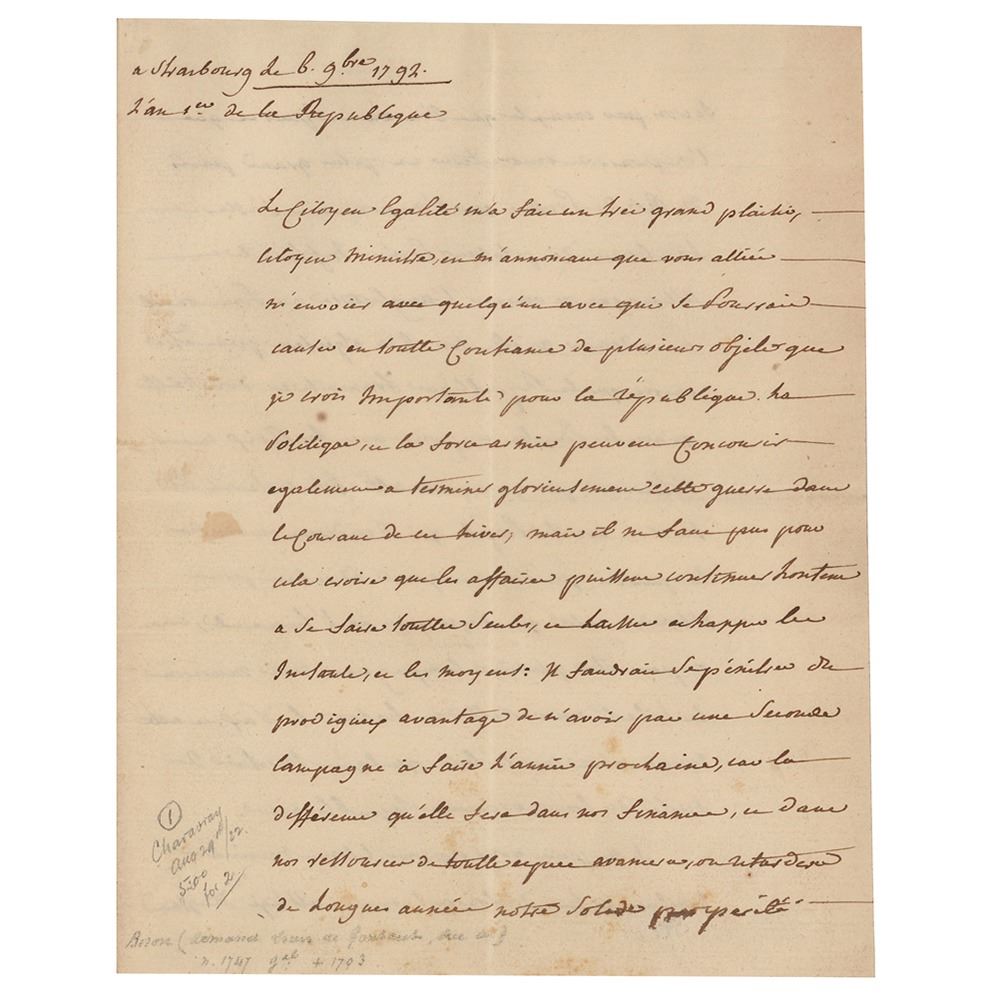 a Strasbourg le 6. 9bre 1792.
L'an 1er de la Republique
Le Citoyen Egalité m'a fait un trés grand plaisir,
citoyen ministre, en m'annoncant que vous alliés
m'envoier avec quelqu'un avec qui je Pourrais
causer en toutte Confiance de plusieurs objets que
je crois Importants pour la république. La
Politique, et la force armée peuvent Concourir
egalement a terminer glorieusement cette guerre dans
le Courant de cet hiver, mais il ne faut pas pour
cela croire que les affaires puissent continuer
a se faire touttes Seules, et laisser echapper les
Instants, et les moyens: Il faudrait Se pénétrer du
prodigieux avantage de n'avoir pas une Seconde
Campagne à faire L'année prochaine, car la
différence qu'elle fera dans nos finances, et dans
nos ressources de toutte espece avancera, ou retardera
de Longues années notre Solide prosperité
1
Charavay
Aug 29 /22.
5.00
for 2
Biron (Armand Louis de Gontaut, duc de)
n. 1747 gal + 1793